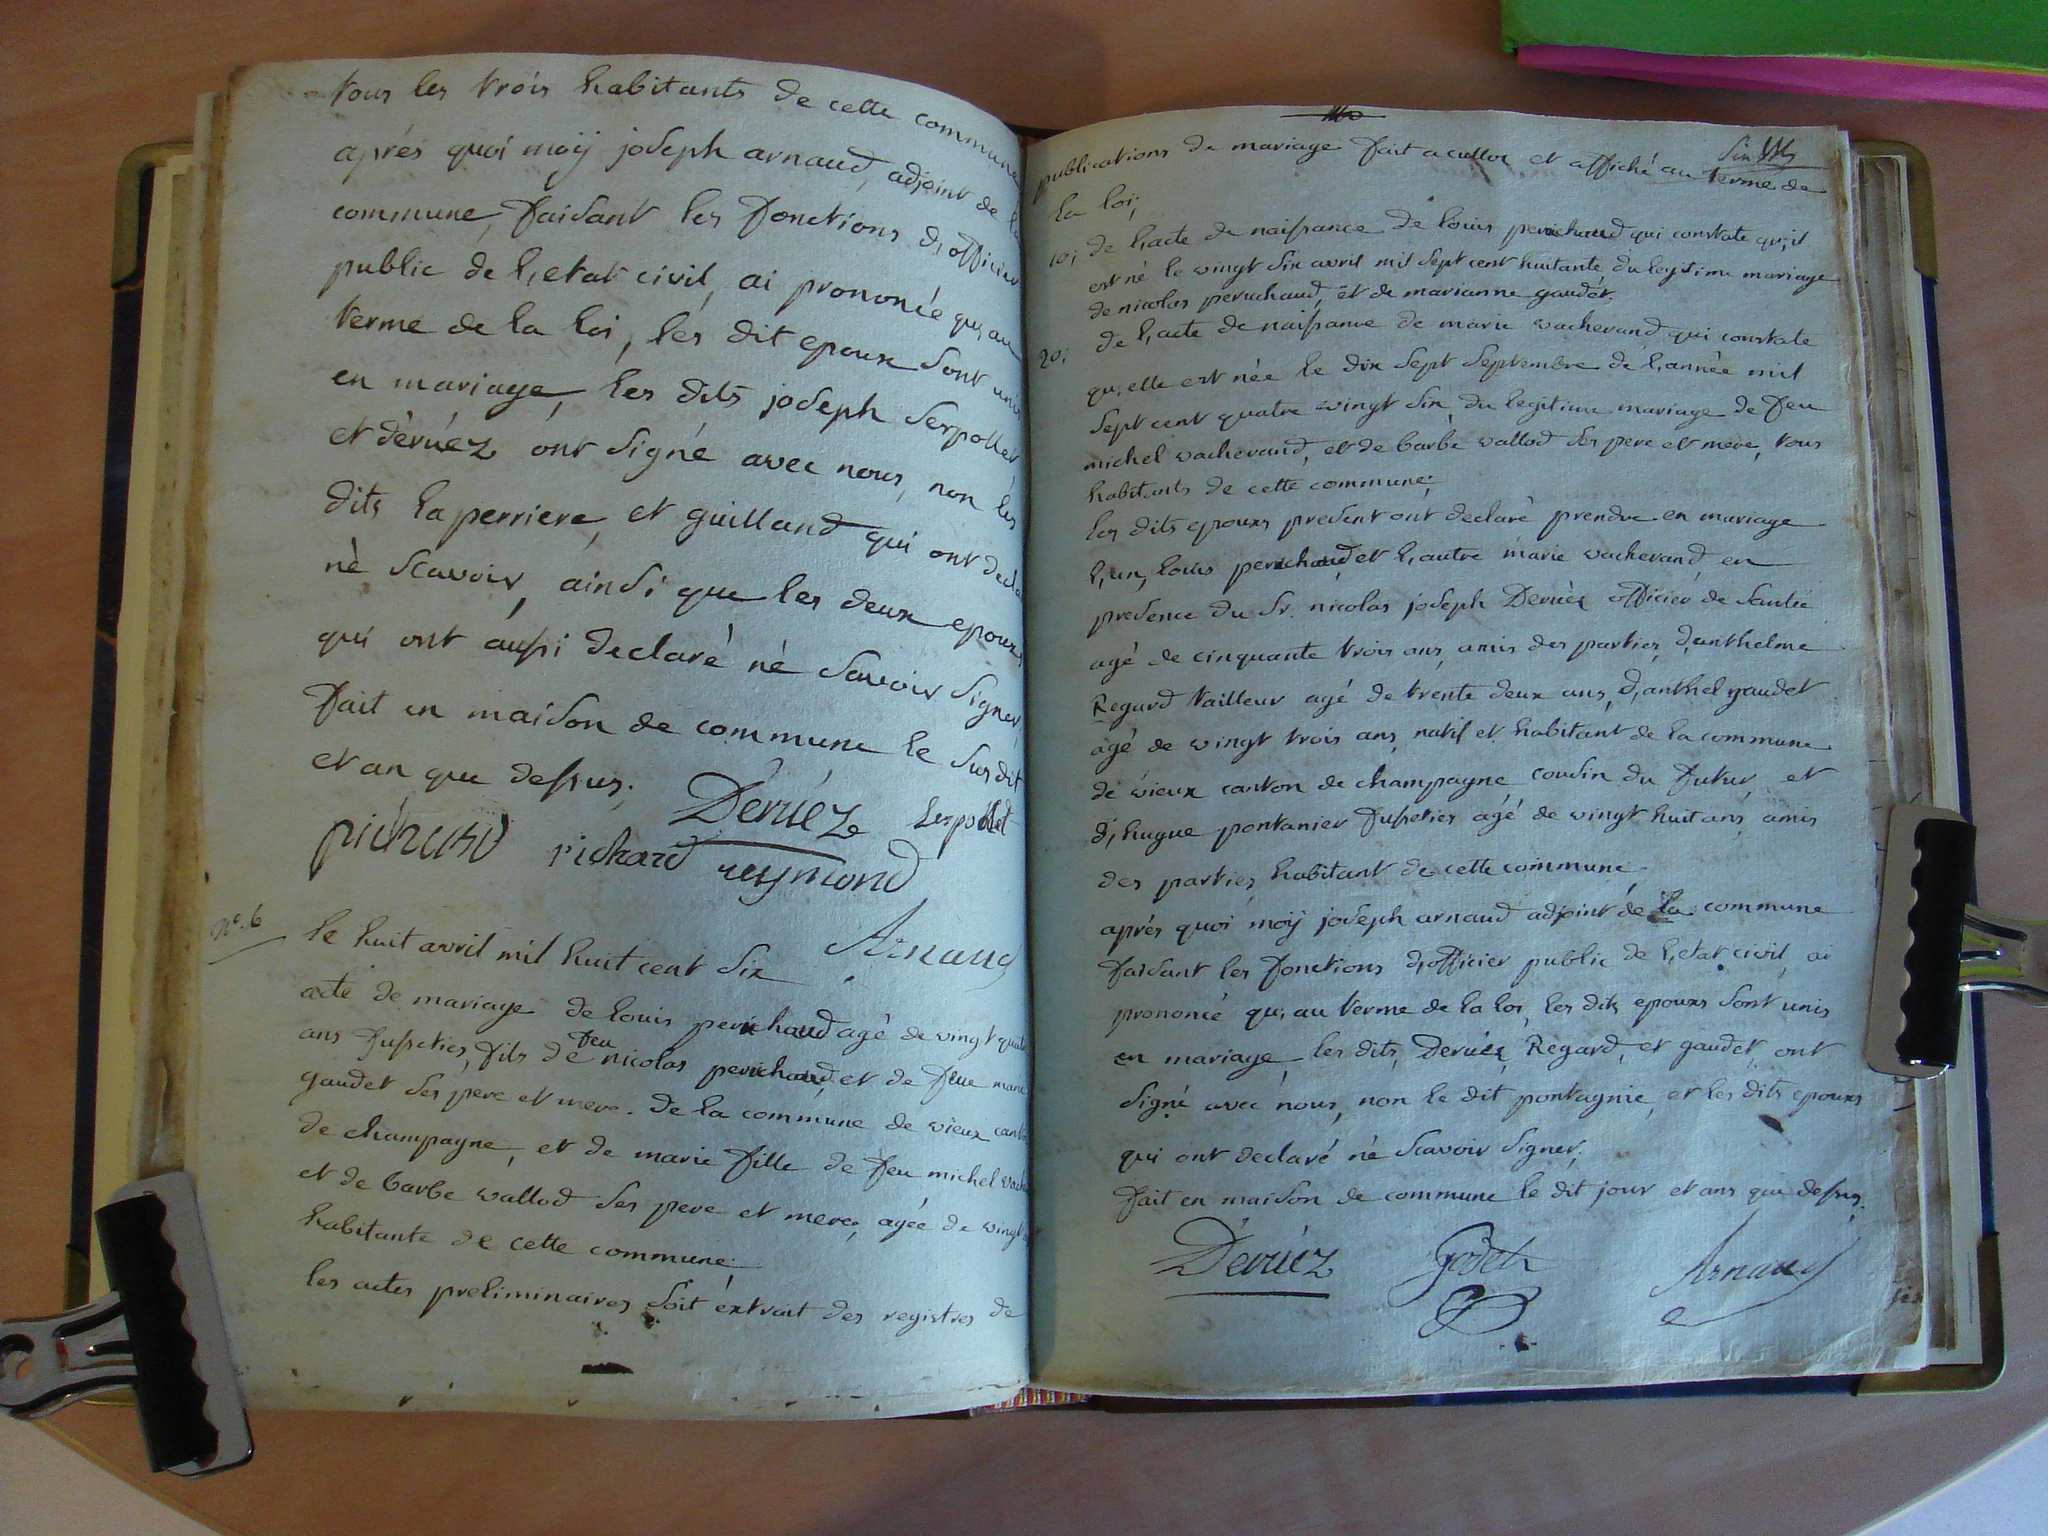 tous les trois habitants de cette commune
aprés quoi moÿ joseph arnaud, adjoint de la
commune, faisant les fonctions d,officier
public de l,etat civil, ai prononcé qu,au
terme de la loi, les dit epoux sont unis
en mariage, les dits joseph serpollet
et dèruéz ont signé avec nous, non les
dits laperriere, et guilland qui ont decla
nè scavoir, ainsi que les deux epoux,
qui ont aussi declaré nè savoir signer,
fait en maison de commune le susdit
et an que dessus.
Déruéz Serpollet
pichard richard reymond
Arnaud
N°. 6
le huit avril mil huit cent six
acte de mariage de louis perichaud agé de vingt quatre
ans fusetier, fils de feu nicolas perichaud et de feue marie
gaudet ses pere et mere. de la commune de vieux canton
de champagne, et de marie fille de feu michel vach
et de barbe vallod ses pere et mere, agée de vingt
habitante de cette commune;
les actes preliminaires soit extrait des registres de
six
publications de mariage fait a cullos et affiché au terme de
la loi;
1o; de l,acte de naissance de louis perichaud qui constate qu,il
est né le vingt six avril mil sept cent huitante, du legitime mariage
de nicolas perichaud, et de marianne gaudet.
2o; de l,acte de naissance de marie vacherand qui constate
qu,elle est née le dix sept septembre de l,année mil
sept cent quatre vingt six, du legitime mariage de feu
michel vacherand, et de barbe vallod ses pere et mere, tous
habitants de cette commune;
les dits epoux present ont declaré prendre en mariage
l,un, louis perichaud et l,autre marie vacherand, en
presence du Sr. nicolas joseph Deruéz officier de santé
agé de cinquante trois ans, amis des parties, d,anthelme
Regard tailleur agé de trente deux ans, d,anthel gaudet
agé de vingt trois ans, natif et habitant de la commune
de vieux canton de champagne cousin du futur, et
d,hugue pontanier fusetier agé de vingt huit ans, amis
des parties, habitant de cette commune.
aprés quoi moÿ joseph arnaud adjoint de la commune
faisant les fonctions d,officier public de l,etat civil, ai
prononcé qu,au terme de la loi, les dits epoux sont unis
en mariage, les dits, Deruéz, Regard, et gaudet, ont
signé avec nous, non le dit pontagnie, et les dits epoux
qui ont declaré né scavoir signer.
fait en maison de commune le dit jour et ans que dessus.
Déruéz Arnaud